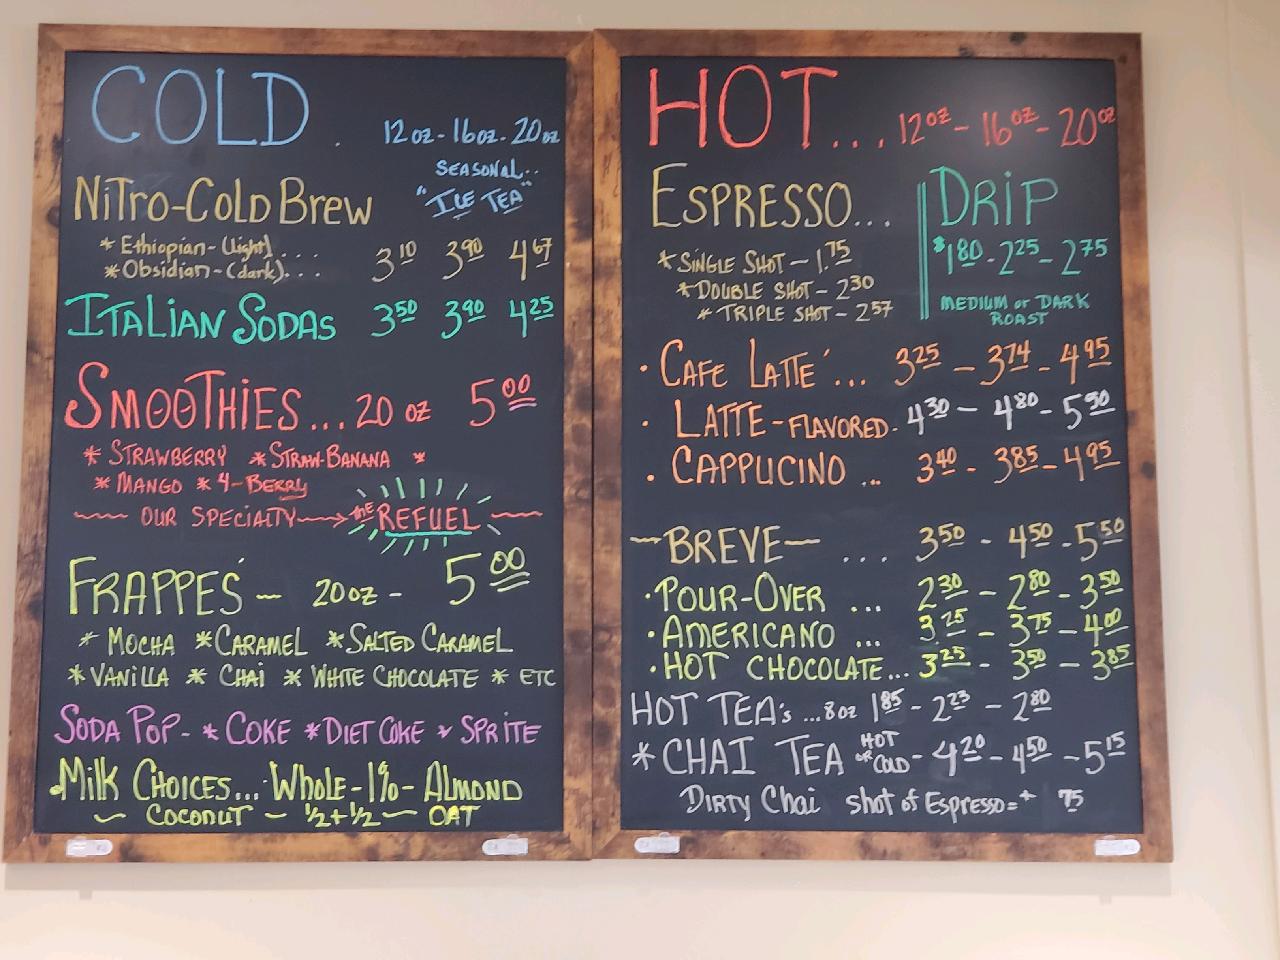 COLD . 12oz-16oz-20oz
SEASONAL..
"ICE TEA"
NITRO-COLD BREW
* Ethiopian-(light).... 3 10 3 90 4 67
* Obsidian-(dark)...
ITALIAN SODAS 3 50 3 90 4 25
SMOOTHIES...20 oz 5 00
* STRAWBERRY * STRAW-BANANA *
* MANGO * 4-BERRY
OUR SPECIALTY→ THE REFUEL
FRAPPES - 20oz - 5 00
* MOCHA * CARAMEL * SALTED CARAMEL
* VANILLA * CHAI * WHITE CHOCOLATE * ETC
SODA POP- * COKE * DIET COKE * SPRITE
MILK CHOICES... WHOLE-1%-ALMOND
~ COCONUT - 1/2+1/2 - OAT
HOT... 12oz - 16oz - 20oz
ESPRESSO...
* SINGLE SHOT - 1.75
* DOUBLE SHOT - 2 30
* TRIPLE SHOT - 2 57
DRIP
$1 80 - 2 25 - 2 75
MEDIUM or DARK
ROAST
• CAFE LATTE'... 3 25 - 3 74 - 4 95
• LATTE-FLAVORED- 4 30 - 4 80 - 5 50
• CAPPUCINO ... 3 40 - 3 85 - 4 95
-BREVE- .... 3 50 - 4 50 - 5 50
• POUR-OVER ... 2 30 - 2 80 - 3 50
• AMERICANO ... 3.25 - 3 75 - 4 00
• HOT CHOCOLATE... 3 25 - 3 50 - 3 85
HOT TEA's ...8oz 1 85 - 2 23 - 2 80
* CHAI TEA HOT or COLD - 4 20 - 4 50 - 5 15
DIRTY Chai shot of Espresso = + 75